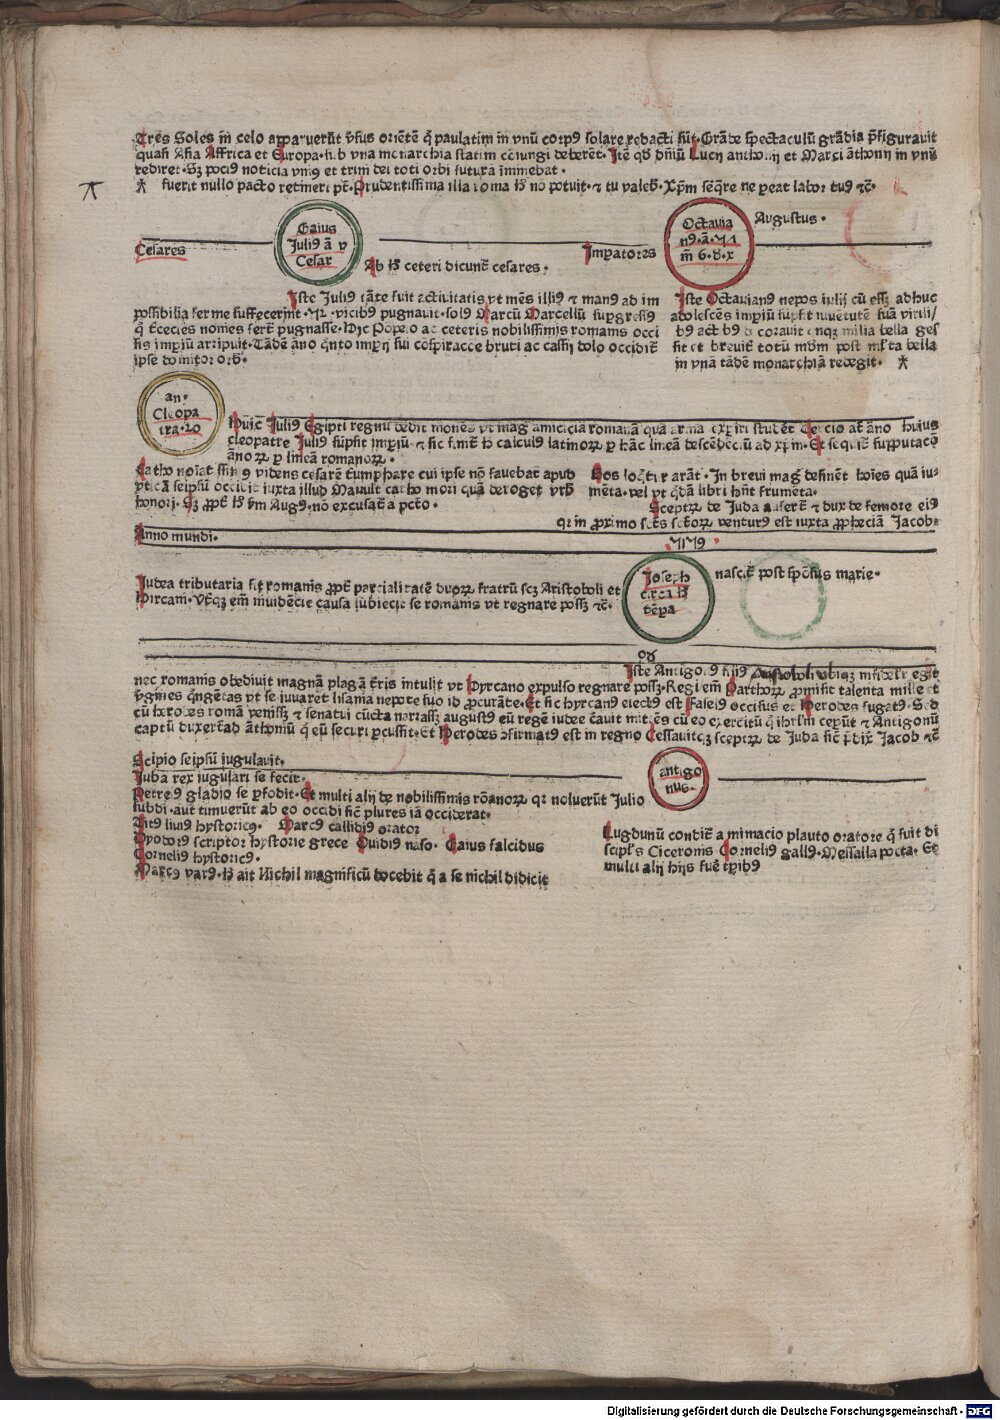 Tres Soles in celo apparuerūt v̄sus oriētē q̄ paulatim in vnū corpꝰ solare redacti sūt. Grāde spectaculū grādia p̄figurauit
quasi Asia Affrica et Europa sub vna monarchia statim cōiungi deberēt. Itē qd̄ dn̄iū Lucij anthonij et Marci āthonij in vnū
rediret. Sꝫ pociꝰ noticia vniꝰ et trini dei toti orbi futura īminebat.
fuerit nullo pacto retineri pt̄. Prudentissima illa roma ħ nō potuit. ⁊ tu valeb. Xp̄m seq̄re ne ꝑeat labor tuꝰ ⁊c̄.
Cesares
Gaius
Juliꝰ ā v
Cesar
Ab ħ ceteri dicunt̄ cesares.
Impatores
Octauia
nꝰ. ā. 41
m̄ 6. d. x
Augustus.
Iste Juliꝰ tāte fuit actiuitatis vt mēs illiꝰ ⁊ manꝰ ad im
possibilia ferme suffecerint. vicibꝰ pugnauit. solꝰ Marcū Marcellū supgressꝰ
q̄ t̄cecies nonies fert̄ pugnasse. Hic Popeio ac ceteris nobilissimis romanis occi
sis impiū arripuit. Tādē āno qⁱnto impij sui cōspiracōe bruti ac cassij dolo occidit̄
ipse domitor orbꝭ.
Iste Octauianꝰ nepos iulij cū esset adhuc
adolescēs impiū suscepit iuuētutē suā virili/
bꝰ act bꝰ d corauit qnqꝫ milia bella ges
sit et breuit̄ totū mūdm post ml̄ta bella
in vnā tādē monarchiā redegit.
an.
Cleopa
tra. 20
Huic Juliꝰ Egipti regnū dedit monēs vt magꝭ amicicia romanā quā arma exꝑiri studēt Tercio at̄ āno huius
cleopatre Juliꝰ suscepit impiū. ⁊ sic fūnt̄ ħ calculꝰ latinoꝝ ꝑ hāc lineā descēdēdū ad xp̄m. Et seqⁱtur supputacō
ānoꝝ ꝑ lineā romanoꝝ.
Catho noīat ssimꝰ videns cesarē tumphare cui ipse nō fauebat apud
vticā seipsū occidit iuxta illud Mauult catho mori quā deroget vrbꝭ
honori. Sꝫ ꝓpt̄ ħ scdm Augꝰ. nō excusat̄ a pctō.
Bos loqⁱtur arāti. In breui magꝭ deficiēt hoīes quā iu-
mēta. vel vt qⁱdā libri hn̄t frumēta.
Sceptꝝ de Juda aufert̄ ⁊ dux de femore eiꝰ
qr in ꝓximo scts sctoꝝ venturꝰ est iuxta ꝓpheciā Jacob.
Anno mundi.
Judea tributaria fit romanis ꝓpt̄ parcialitatē duoꝝ fratrū scꝫ Aristoboli et
Hircani. Vt̄qꝫ em̄ inuidencie causa subiecit se romanis vt regnare possꝫ ⁊c̄.
Joseph
circa ħ
tēpa
nascit̄ post sponsus marie.
Iste Antigonꝰ filiꝰ Aristoboli vbiqꝫ infideliter egit
nec romanis obediuit magnā plagā t̄ris intulit vt Hyrcano expulso regnare possꝫ. Regi em̄ Parthoꝝ ꝓmisit talenta mille et
v̄gines qⁱngētas vt se iuuaret lisania nepote suo id ꝓcurāte. Et sic hyrcanꝰ eiectꝰ est Faselꝰ occisus et Herodes fugatꝰ. Sed
cū herodes romā venissꝫ ⁊ senatui cūcta narrassꝫ augustꝰ eū regē iudee creauit mittēs cū eo exercitū q̄ ihrlm̄ cepūt ⁊ Antigonū
captū duxerūt ad āthoniū q̄ eū securi ꝑcussit. Et Herodes ɔfirmatꝰ est in regno Cessauitqꝫ sceptꝝ de Juda sic̄ p̄dixit Jacob ⁊c̄
Scipio seipsū iugulauit.
Juba rex iugulari se fecit.
Petreꝰ gladio se ꝑfodit. Et multi alij de nobilissimis rōanoꝝ qr noluerūt Julio
subdi. aut timuerūt ab eo occidi sic̄ plures iā occiderat.
Titꝰ liuiꝰ hystoricꝰ. Marcꝰ callidiꝰ orator
Dyodorꝰ scriptor hystorie grece Ouidiꝰ naso. Gaius falcidus
Corneliꝰ hystoricꝰ.
Marcꝰ varꝰ. ħ ait Nichil magnificū docebit q̄ a se nichil didicit
anti go
nus.
Lugdunū condit̄ a mimacio plauto oratore q̄ fuit di
scipl̄s Ciceronis Corneliꝰ gallꝰ. Messalla poeta. Et
multi alij hijs fuēt t̄pibꝰ
Digitalisierung gefördert durch die Deutsche Forschungsgemeinschaft · DFG